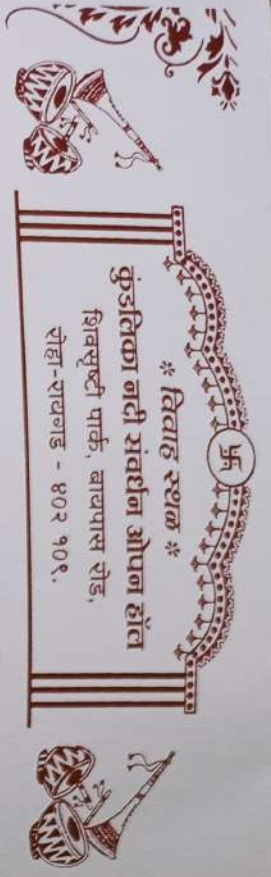 * विवाह स्थळ *
कुंडलिका नदी संवर्धन ओपन हॉल
शिवसृष्टी पार्क, बायपास रोड,
रोहा-रायगड - ४०२ १०९.